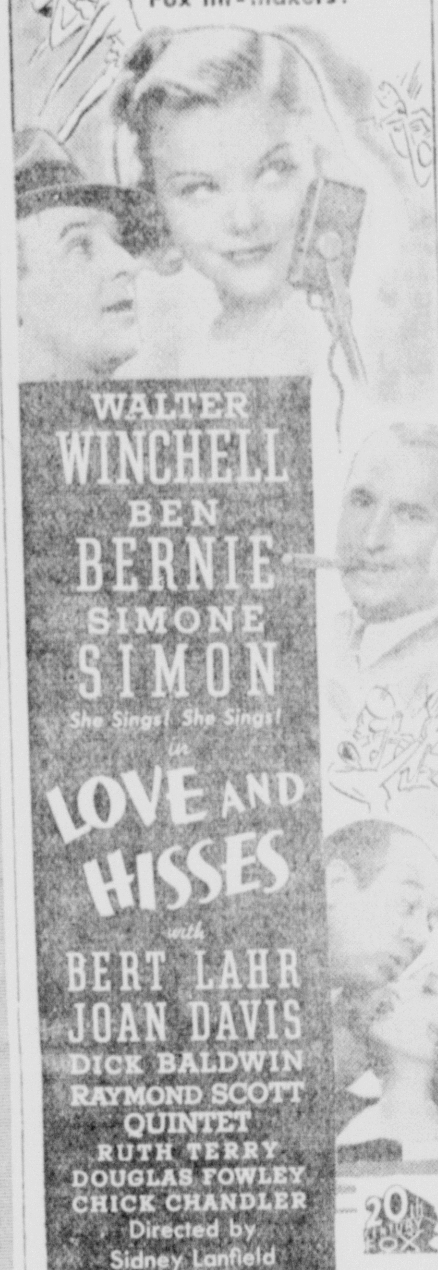 WALTER
WINCHELL
BEN
BERNIE
SIMONE
SIMON
She Sings! She Sings!
in
LOVE AND
HISSES
with
BERT LAHR
JOAN DAVIS
DICK BALDWIN
RAYMOND SCOTT
QUINTET
RUTH TERRY
DOUGLAS FOWLEY
CHICK CHANDLER
Directed by
Sidney Lanfield
20th
CENTURY
FOX